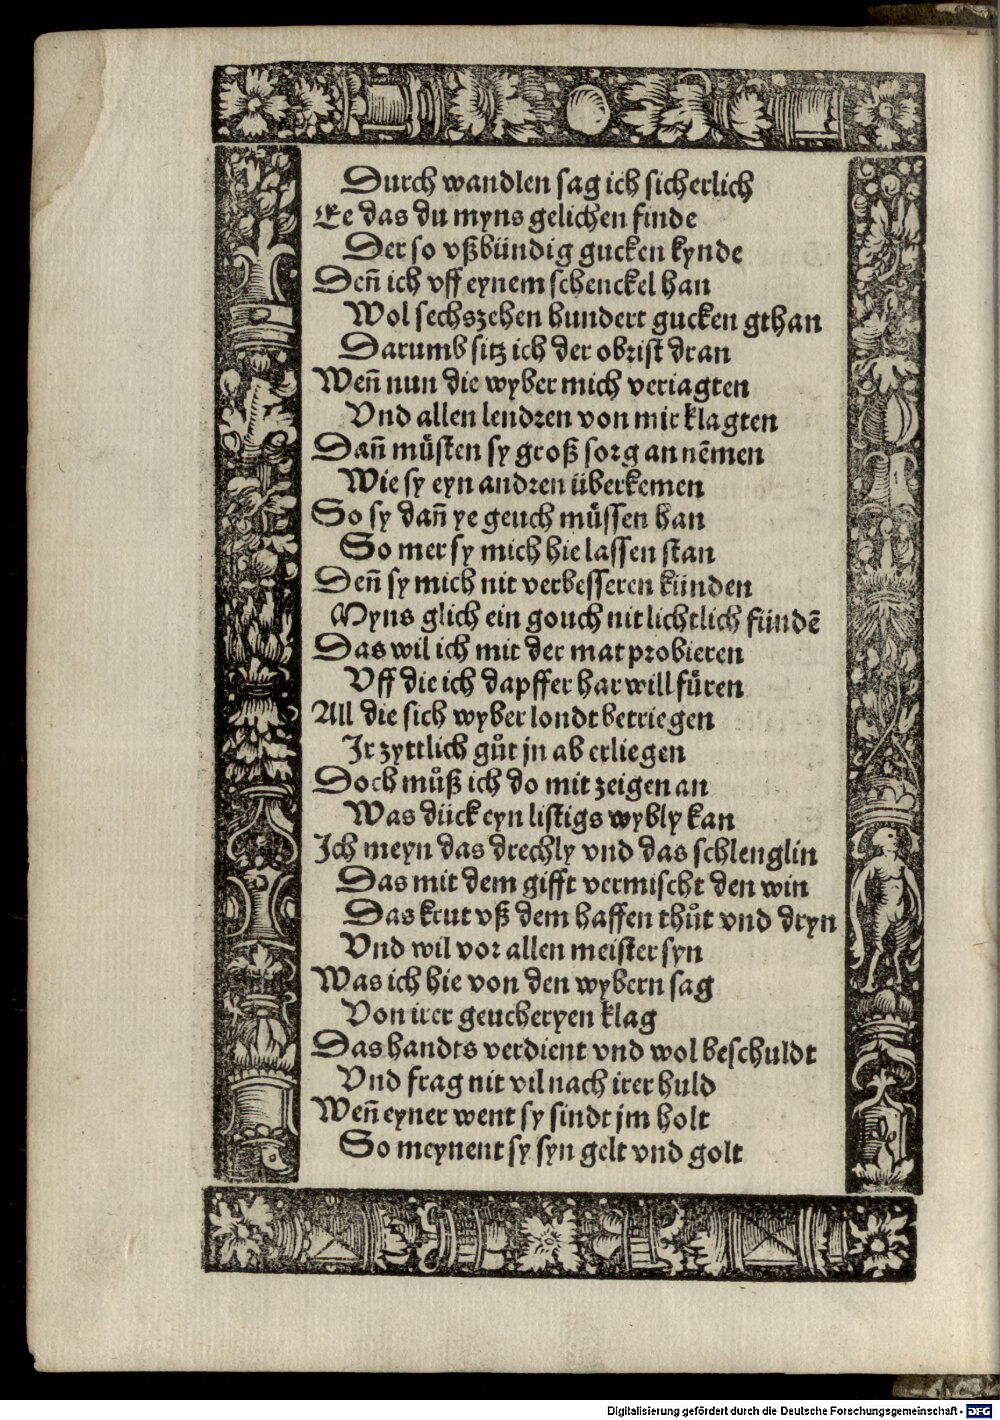 Durch wandlen sag ich sicherlich
Ee das du myns gelichen finde
Der so vßbündig gucken kynde
Deñ ich vff eynem schenckel han
Wol sechszehen hundert gucken gthan
Darumb sitz ich der obrist dran
Weñ nun die wyber mich veriagten
Vnd allen lendren von mir klagten
Dañ müsten sy groß sorg an nẽmen
Wie sy eyn andren überkemen
So sy dañ ye geuch müssen han
So mer sy mich hie lassen stan
Deñ sy mich nit verbesseren künden
Myns glich ein gouch nit lichtlich fündẽ
Das wil ich mit der mat probieren
Vff die ich dapffer har will füren
All die sich wyber londt betriegen
Ir zyttlich gůt jn ab erliegen
Doch můß ich do mit zeigen an
Was dück eyn listigs wybly kan
Ich meyn das drechly vnd das schlenglin
Das mit dem gifft vermischt den win
Das krut vß dem haffen thůt vnd dryn
Vnd wil vor allen meister syn
Was ich hie von den wybern sag
Von irer geucheryen klag
Das handts verdient vnd wol beschuldt
Vnd frag nit vil nach irer huld
Weñ eyner went sy sindt jm holt
So meynent sy syn gelt vnd golt
Digitalisierung gefördert durch die Deutsche Forschungsgemeinschaft - DFG